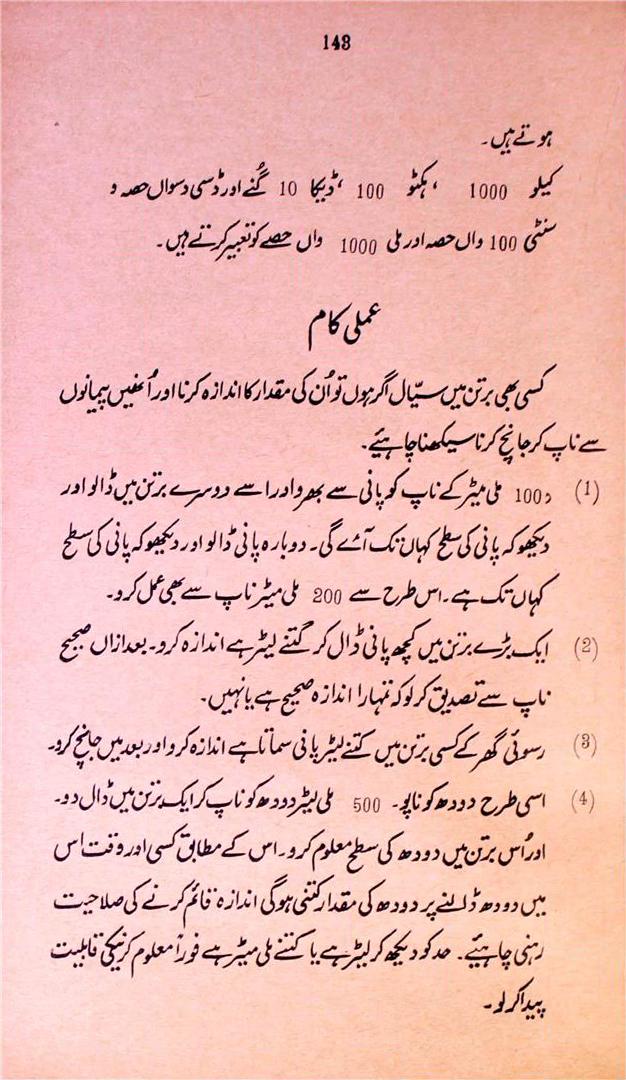 143
ہوتے ہیں۔
کیلو 1000 ، ہکٹو 100 ، ڈیکا 10 گُنے اور ڈسی دسواں حصہ و
سنٹی 100 واں حصہ اور ملی 1000 واں حصے کو تعبیر کرتے ہیں۔
عملی کام
کسی بھی برتن میں سیّال اگر ہوں تو اُن کی مقدار کا اندازہ کرنا اور اُنھیں پیمانوں
سے ناپ کر جانچ کرنا سیکھنا چاہئیے۔
(1) د100 ملی میٹر کے ناپ کو پانی سے بھرو اور اسے دوسرے برتن میں ڈالو اور
دیکھو کہ پانی کی سطح کہاں تک آئے گی۔ دوبارہ پانی ڈالو اور دیکھو کہ پانی کی سطح
کہاں تک ہے۔ اس طرح سے 200 ملی میٹر ناپ سے بھی عمل کرو۔
(2) ایک بڑے برتن میں کچھ پانی ڈال کر کتنے لیٹر ہے اندازہ کرو۔ بعد ازاں صحیح
ناپ سے تصدیق کر لو کہ تمہارا اندازہ صحیح ہے یا نہیں۔
(3) رسوئی گھر کے کسی برتن میں کتنے لیٹر پانی سماتا ہے اندازہ کرو اور بعد میں جانچ کرو۔
(4) اسی طرح دودھ کو ناپو۔ 500 ملی لیٹر دودھ کو ناپ کر ایک برتن میں ڈال دو۔
اور اُس برتن میں دودھ کی سطح معلوم کرو۔ اس کے مطابق کسی اور وقت اس
میں دودھ ڈالنے پر دودھ کی مقدار کتنی ہوگی اندازہ قائم کرنے کی صلاحیت
رہنی چاہئیے۔ حد کو دیکھ کر لیٹر ہے یا کتنے ملی میٹر ہے فوراً معلوم کرنیکی قابلیت
پیدا کر لو۔